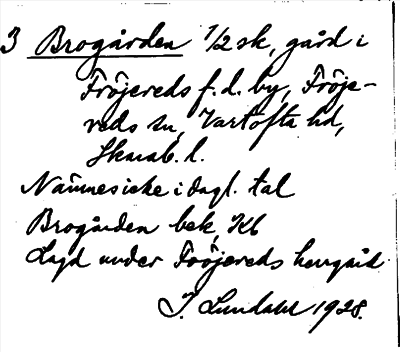 3 Brogården 1/2 sk, gård i
Fröjereds f.d. by, Fröje-
reds sn, Vartofta hd,
Skarab. l.
Nämnes icke i dagl. tal
Brogården bek, Kb
Lagd under Fröjereds herrgård
I. Lundahl 1928.